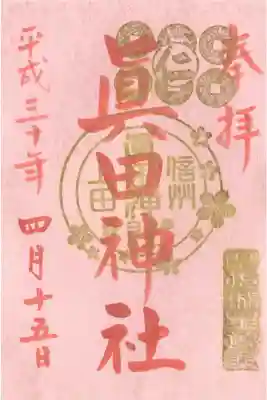 奉拝
眞田神社
信州
上田
平成三十年
四月十五日